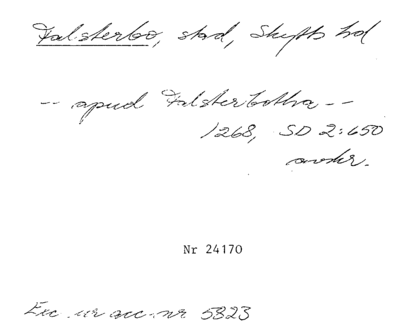 Falsterbo, stad, Skytts hd
-- apud Falsterbotha --
1268, SD 2:650
avskr.
Nr 24170
Exc. ur acc.nr. 5323